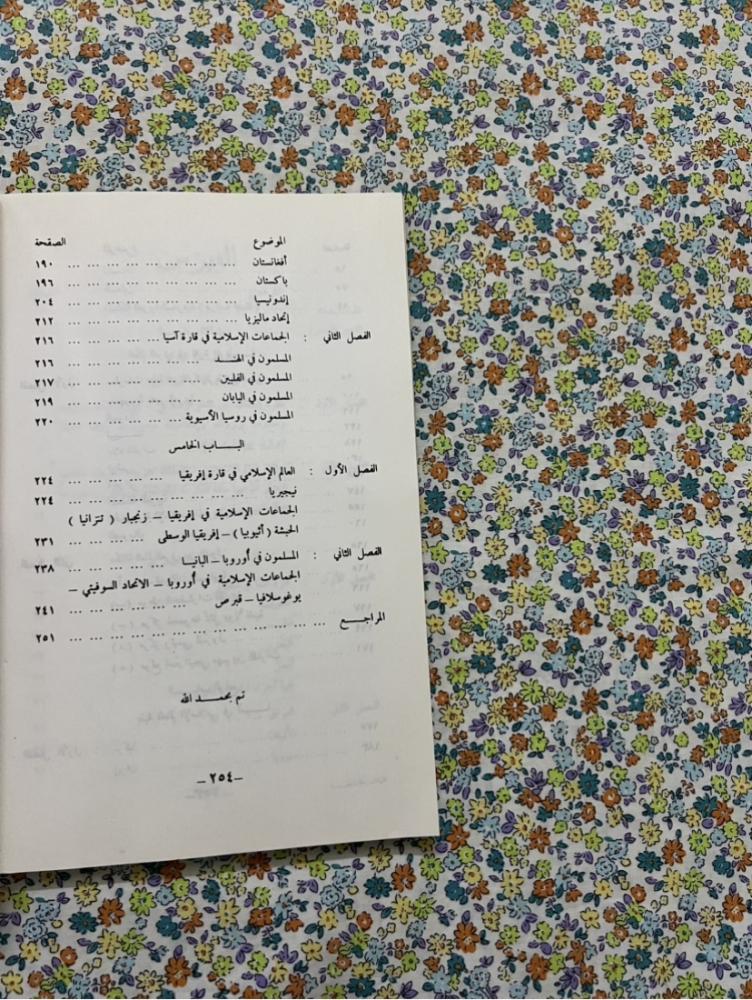 الموضوع الصفحة
أفغانستان ... ... ... ... ... ... ... ... ... ١٩٠
باكستان ... ... ... ... ... ... ... ... ... ١٩٦
إندونيسيا ... ... ... ... ... ... ... ... ... ٢٠٤
إتحاد ماليزيا ... ... ... ... ... ... ... ... ٢١٢
الفصل الثاني : الجماعات الإسلامية في قارة آسيا ... ... ... ... ... ٢١٦
المسلمون في الهنـد ... ... ... ... ... ... ٢١٦
المسلمون في الفلبين ... ... ... ... ... ... ٢١٧
المسلمون في اليابان ... ... ... ... ... ... ٢١٩
المسلمون في روسيا الآسيوية ... ... ... ... ... ٢٢٠
البـــاب الخامس
الفصل الأول : العالم الإسلامي في قارة إفريقيا ... ... ... ... ٢٢٤
نيجيريا ... ... ... ... ... ... ... ... ... ٢٢٤
الجماعات الإسلامية في إفريقيا – زنجبار ( تنزانيا )
الحبشة ( أثيوبيا ) – إفريقيا الوسطى ... ... ... ... ٢٣١
الفصل الثاني : المسلمون في أوروبا – البانيـا ... ... ... ... ... ٢٣٨
الجماعات الإسلامية في أوروبا – الاتحاد السوفيتي –
يوغوسلافيا – قبرص ... ... ... ... ... ... ٢٤١
المراجـــع ... ... ... ... ... ... ... ... ... ... ... ... ٢٥١
تم بحمـد الله
– ٢٥٤ –